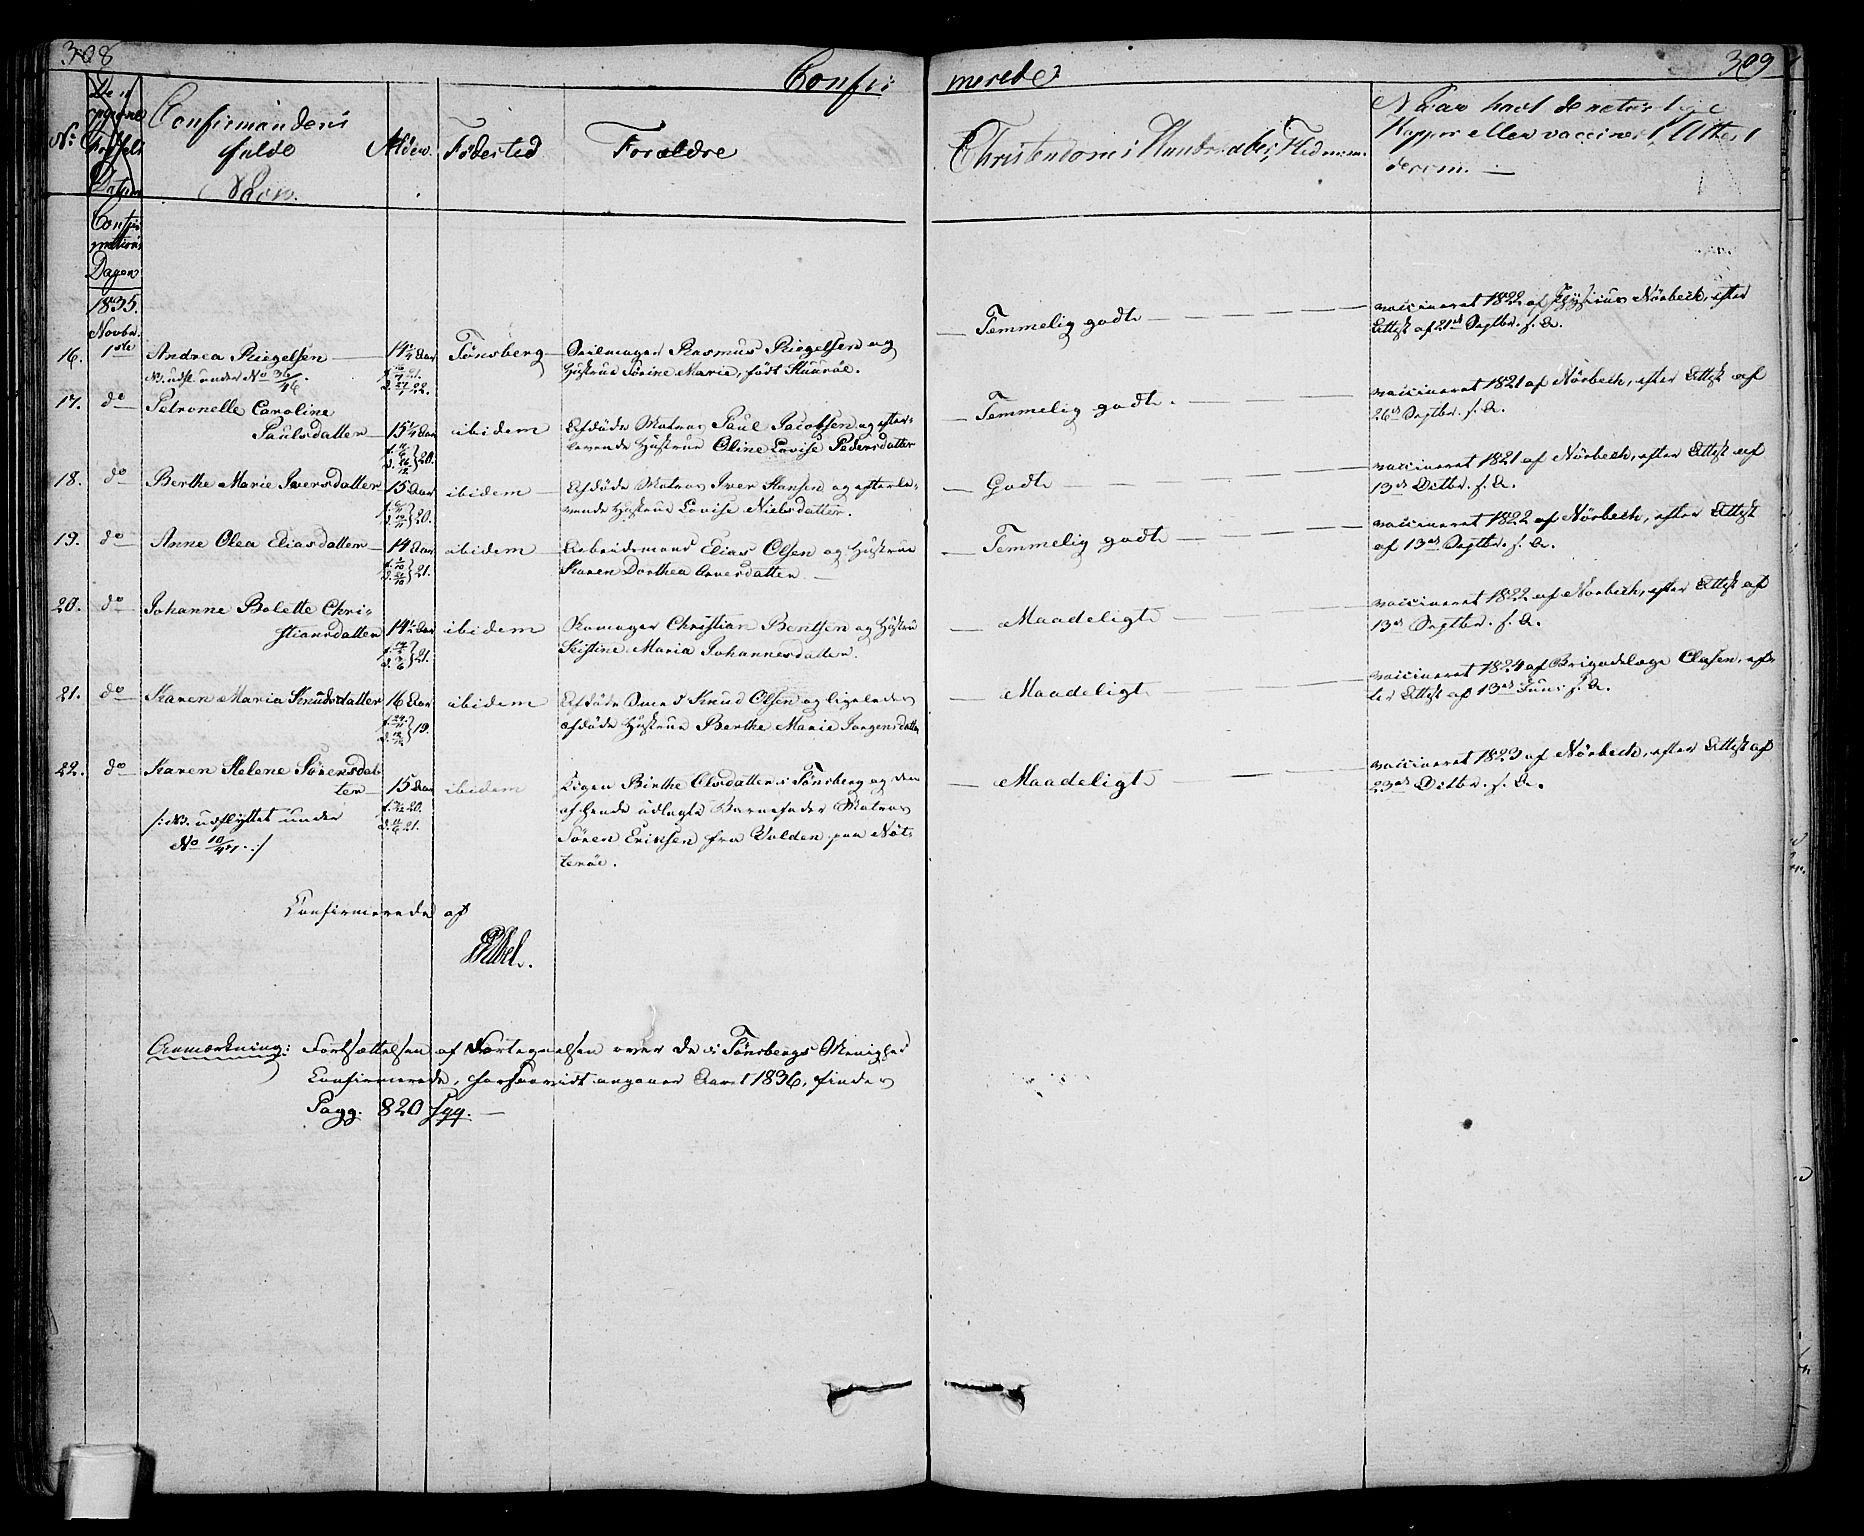 308
Confir:
merede.
309
No
Confirmandens
fulde
Navn.
Alder.
Fødested
Forældre
Christendoms Kundskaber, Flid m.m.
Naar havt de naturlige
Kopper eller vaccineret, Attest
derom. —
Confir
mations
Dagen
1835.
Novbr.
16. 1ste Andrea Riegelsen — 14¼ Aar Tønsberg — Seilmager Rasmus Riegelsen og
NB. udfl. under No 36/46. Hustrue Sørine Marie, født Stuuröe.
— Temmelig godt — vaccineret 1822 af Physicus Nörbech, efter
Attest af 21de Septbr. s. A.
17. do Petronelle Caroline
Paulsdatter — 15¼ Aar ibidem Afdöde Matros Paul Jacobsen og efter-
levende Hustrue Oline Lovise Pedersdatter
— Temmelig godt. — vaccineret 1821 af Nörbech, efter Attest af
26de Septbr. s. A.
18. do Berthe Marie Iversdatter 15 Aar ibidem — Afdöde Matros Iver Hansen og efterle-
vende Hustrue Lovise Nielsdatter.
— Godt — vaccineret 1821 af Nörbech, efter Attest af
13de Octbr. s. A.
19. do Anne Olea Eliasdatter — 14 Aar ibidem — Arbeidsmand Elias Olsen og Hustrue
Karen Dorthea Arnesdatter —
— Temmelig godt — vaccineret 1822 af Nörbech, efter Attest
af 13de Septbr. s. A.
20. do Johanne Bolette Chri-
stiansdatter 14½ Aar ibidem — Skomager Christian Bentsen og Hustrue
Kistine Maria Johannesdatter.
— Maadeligt — vaccineret 1822 af Nörbech, efter Attest af
13de Septbr. s. A.
21. do Karen Maria Knudsdatter 16 Aar ibidem Afdöde Smed Knud Olsen og ligeledes
afdöde Hustrue Berthe Marie Jorgensdatter
— Maadeligt — vaccineret 1824 af Brigadelæge Clasen, ef-
ter Attest af 13de Juni s. A.
22. do Karen Helene Sörensdat-
ter — 15 Aar ibidem Pigen Birthe Olsdatter i Tønsberg og den
/: NB. udflyttet under af hende udlagte Barnefader Matros
No 10/41. :/ Sören Eriksen fra Volden paa Nöt-
teröe.
— Maadeligt — vaccineret 1823 af Nörbech, efter Attest af
23de Octbr. s. A.
Confirmerede af
Anmærkning: Fortsættelsen af Fortegnelsen over de i Tønsbergs Menighed
Confirmerede, forsaavidt angaaer Aaret 1836, findes
Pagg. 820 sqq. —